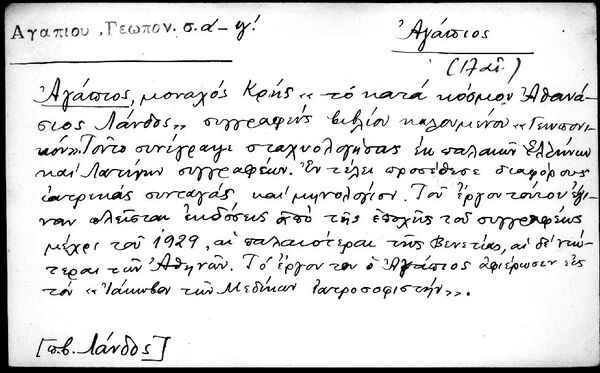 Αγαπιου, Γεωπον. σ. α-γ!
Ἀγάπιος
(17 αἰ.)
Ἀγάπιος, μοναχός Κρής «τό κατά κόσμον Ἀθανά-
σιος Λάνδος» συγγραφεύς βιβλίου καλουμένου «Γεωπονι-
κόν». Τοῦτο συνέγραψε σταχυολογήσας ἐκ παλαιῶν Ἑλλήνων
καί Λατίνων συγγραφέων. Ἐν τέλει προσέθεσε διαφόρους
ἰατρικάς συνταγάς καί μηνολόγιον. Τοῦ ἔργου τούτου ἔγι-
ναν πλεῖσται ἐκδόσεις ἀπό τῆς ἐποχῆς τοῦ συγγραφέως
μέχρι τοῦ 1929, αἱ παλαιότεραι τῆς Βενετίας, αἱ δέ νεώ-
τεραι τῶν Ἀθηνῶν. Τό ἔργον του ὁ Ἀγάπιος ἀφιέρωσεν εἰς
τόν «Ἰάκωβον τῶν Μεδίκων ἰατροσοφιστήν».
[π.β. Λάνδος]